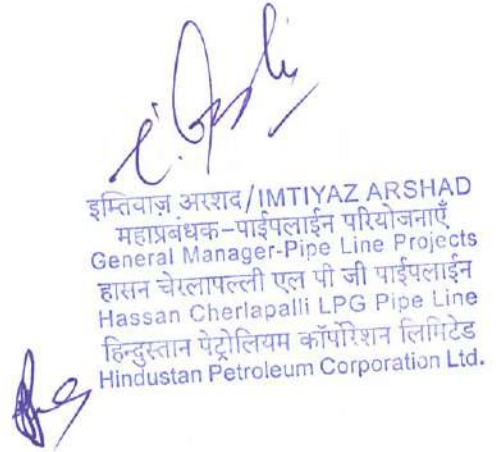 इम्तियाज़ अरशद/IMTIYAZ ARSHAD
महाप्रबंधक-पाईपलाईन परियोजनाएँ
General Manager-Pipe Line Projects
हासन चेरलापल्ली एल पी जी पाईपलाईन
Hassan Cherlapalli LPG Pipe Line
हिन्दुस्तान पेट्रोलियम कॉर्पोरेशन लिमिटेड
Hindustan Petroleum Corporation Ltd.